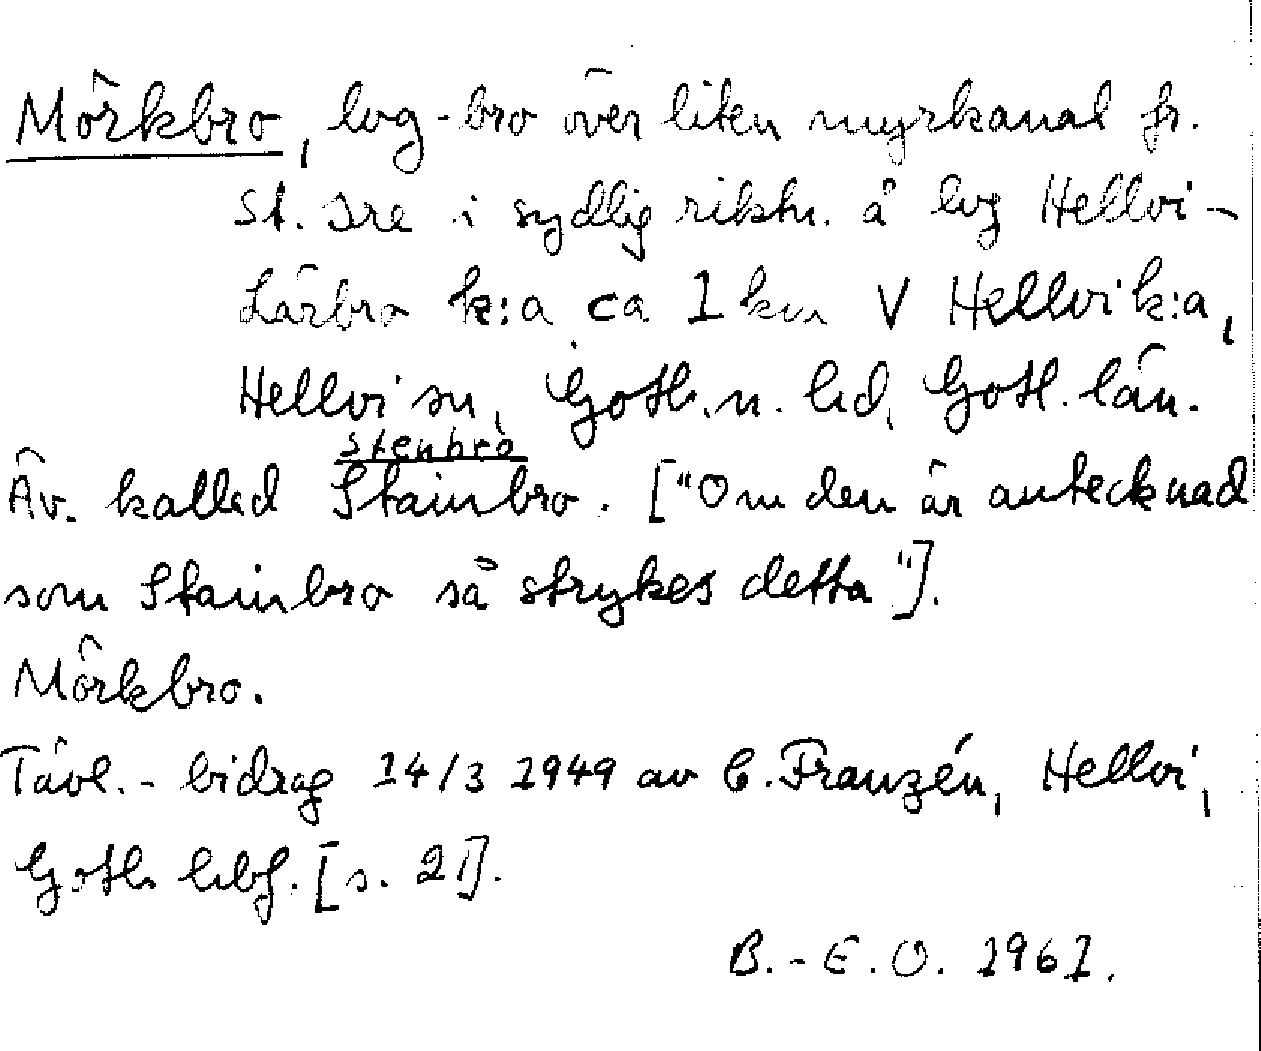 Mörkbro, lvg-bro över liten myrkanal fr.
St. Ire i sydlig riktn. å lvg Hellvi-
Lärbro k:a ca 1 km V Hellvi k:a,
Hellvi sn, Gotl. n. hd, Gotl. län.
stenbro
Äv. kallad Stainbro. ["Om den är antecknad
som Stainbro så strykes detta"].
Mörkbro.
Tävl.-bidrag 14/3 1949 av C. Franzén, Hellvi,
Gotl. hbf. [s. 21].
B.-E.O. 1961.